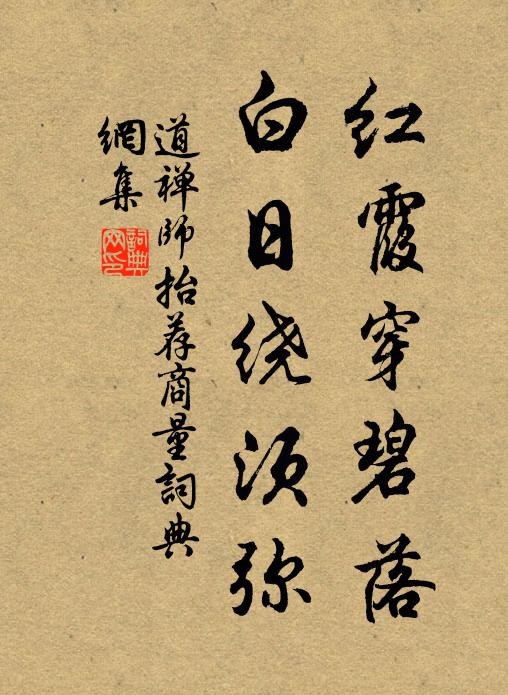 红霞穿碧落
白日绕须弥
道禅师抬荐商量詞典
網集
詞典
网印